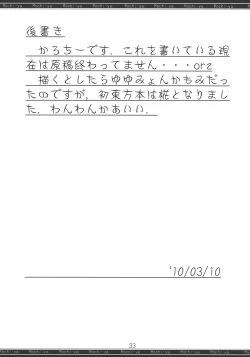 後書き
かろちーです. これを書いている現
在は原稿終わってません・・・orz
描くとしたらゆゆみょんかもみだっ
たのですが, 初東方本は椛となりまし
た. わんわんかあいい.
'10/03/10
33